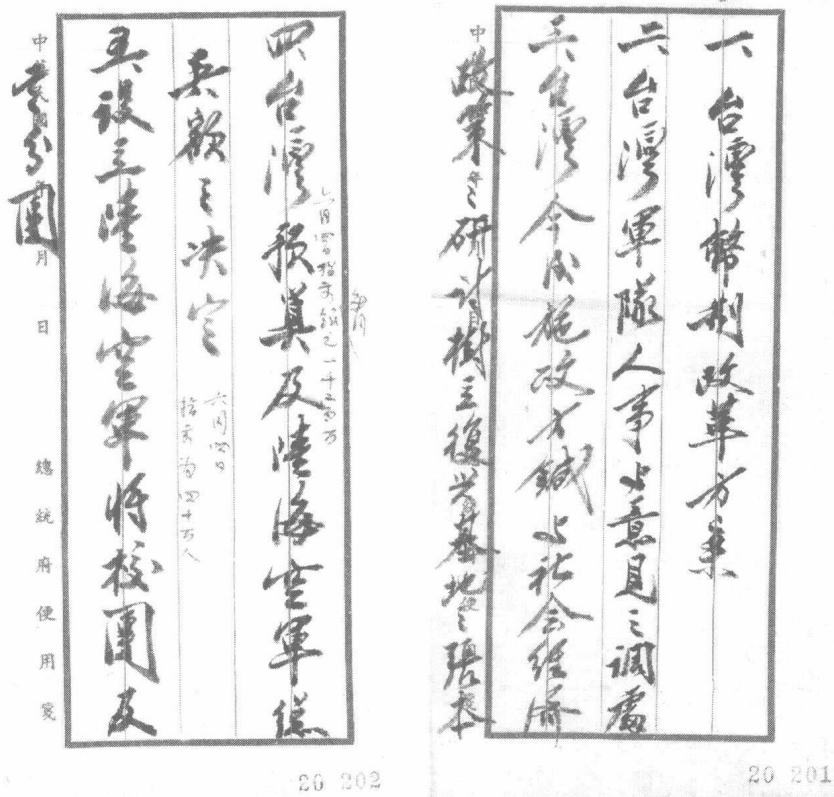 一 台灣幣制改革方案
二 台灣軍隊人事與意見之調處
三 台灣今後施政方鍼與社會經濟
政策之研討樹立復興基地之張本
中
20 201
四 台灣預算及陸海空軍總
每月
六月四日指 銀元一千二百万
兵額之決定
六月四日
指 為四十万人
五 設立陸海空軍將校團及
黨分團
中 民國 月 日 總統府便用箋
20 202